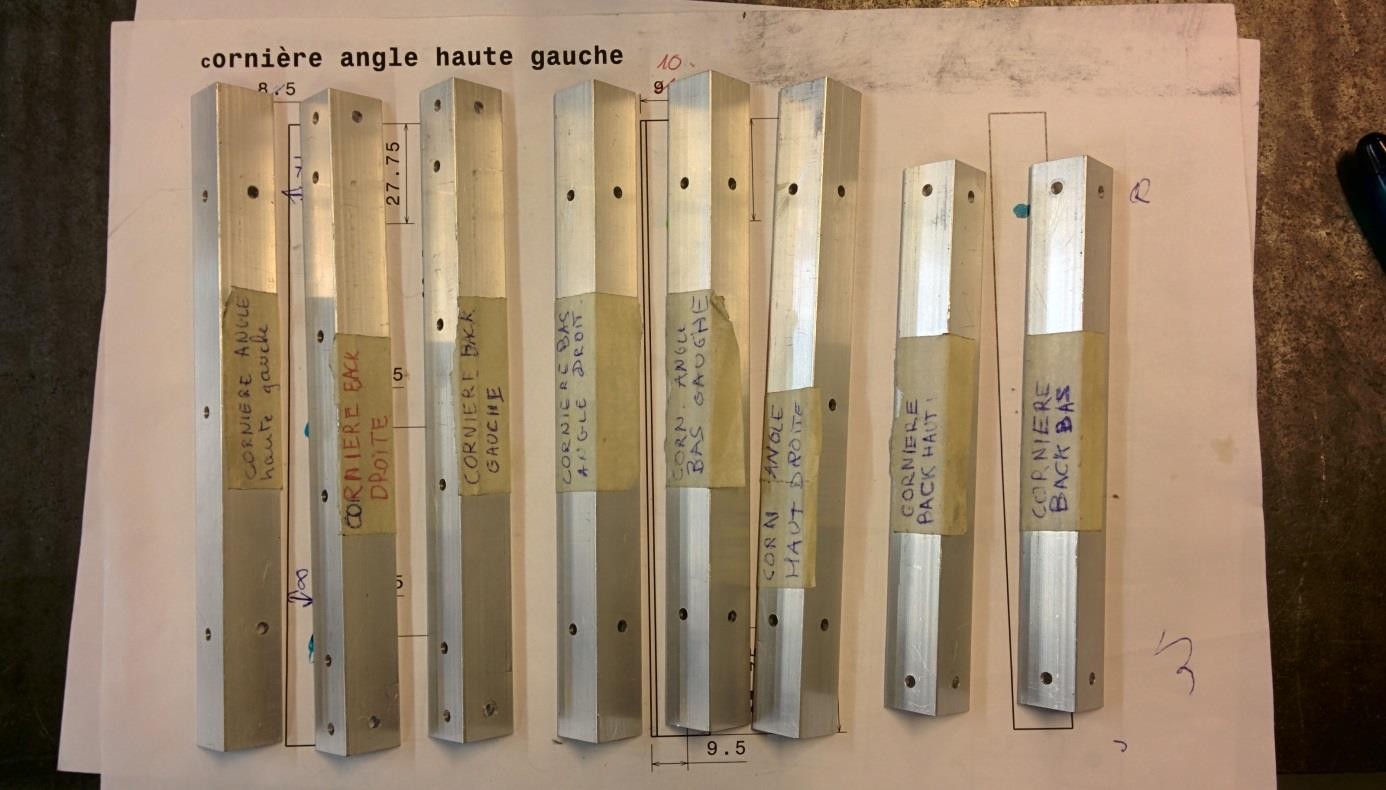 cornière angle haute gauche
10.
8.5
9
27.75
5
5
9.5
CORNIERE ANGLE
haute gauche
CORNIERE BACK
DROITE
CORNIERE BACK
GAUCHE
CORNIERE BAS
ANGLE DROIT
CORN. ANGLE
BAS GAUGHE
CORN ANGLE
HAUT DROITE
CORNIERE
BACK HAUT
CORNIERE
BACK BAS